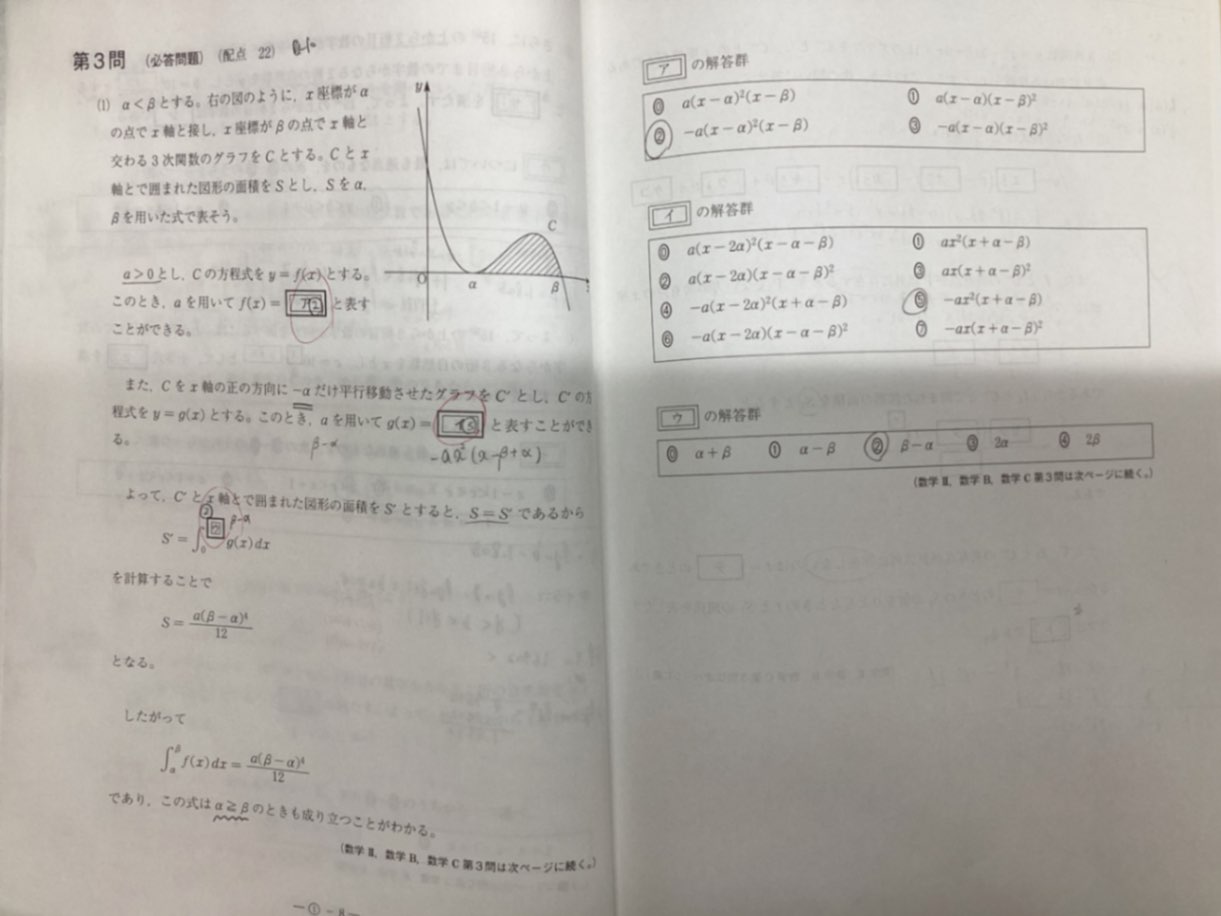 第3問 (必答問題) (配点 22)
(1) α<βとする。右の図のように、x座標がα
の点でx軸と接し、x座標がβの点でx軸と
交わる3次関数のグラフをCとする。Cとx
軸とで囲まれた図形の面積をSとし、Sをα,
βを用いた式で表そう。
y
C
O
α
β
a>0とし、Cの方程式をy=f(x)とする。
このとき、aを用いてf(x)= ア ② と表す
ことができる。
また、Cをx軸の正の方向に-αだけ平行移動させたグラフをC′とし、C′の方
程式をy=g(x)とする。このとき、aを用いてg(x)= イ ⑤ と表すことができ
る。
β-α
-ax²(x-β+α)
よって、C′とx軸とで囲まれた図形の面積をS′とすると、S=S′であるから
② β-α
S′=∫₀^ウ g(x)dx
を計算することで
S= a(β-α)⁴/12
となる。
したがって
∫_α^β f(x)dx= a(β-α)⁴/12
であり、この式はα≧βのときも成り立つことがわかる。
(数学Ⅱ, 数学B, 数学C第3問は次ページに続く。)
―①―8―
ア の解答群
⓪ a(x-α)²(x-β) ① a(x-α)(x-β)²
② -a(x-α)²(x-β) ③ -a(x-α)(x-β)²
イ の解答群
⓪ a(x-2α)²(x-α-β) ① ax²(x+α-β)
② a(x-2α)(x-α-β)² ③ ax(x+α-β)²
④ -a(x-2α)²(x+α-β) ⑤ -ax²(x+α-β)
⑥ -a(x-2α)(x-α-β)² ⑦ -ax(x+α-β)²
ウ の解答群
⓪ α+β ① α-β ② β-α ③ 2α ④ 2β
(数学Ⅱ, 数学B, 数学C第3問は次ページに続く。)